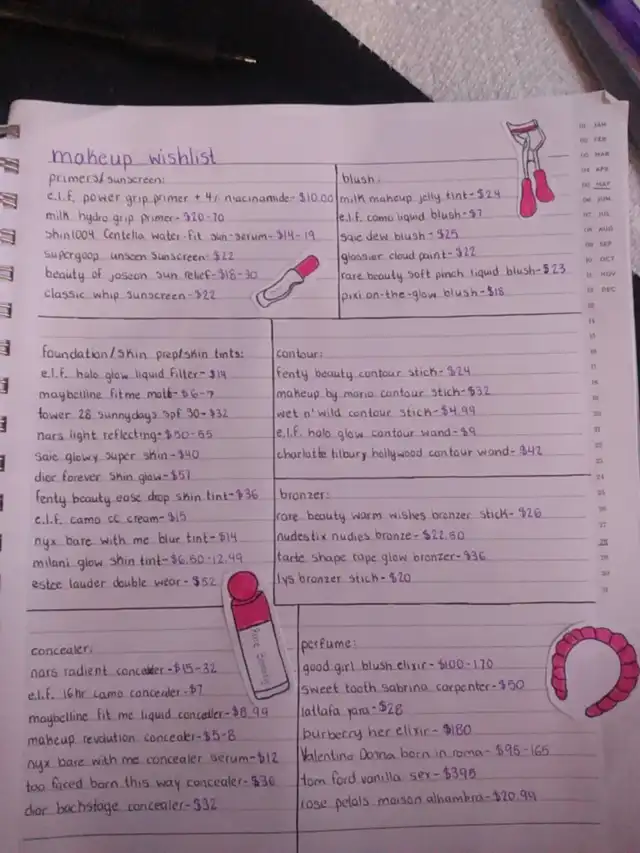 makeup wishlist
primers/sunscreen:
e.l.f. power grip primer + 4% niacinamide-$10.00
milk hydro grip primer-$20-70
skin1004 centella water-fit sun-serum-$14-19
supergoop unseen sunscreen-$22
beauty of joseon sun relief-$18-30
classic whip sunscreen-$22
blush:
milk makeup jelly tint-$24
e.l.f. camo liquid blush-$7
saie dew blush-$25
glossier cloud paint-$22
rare beauty soft pinch liquid blush-$23
pixi on-the-glow blush-$18
foundation/skin prep/skin tints:
e.l.f. halo glow liquid filter-$14
maybelline fit me matt-$6-7
tower 28 sunnydays spf 30-$32
nars light reflecting-$50-55
saie glowy super skin-$40
dior forever skin glow-$57
fenty beauty ease drop skin tint-$36
e.l.f. camo cc cream-$15
nyx bare with me blur tint-$14
milani glow skin tint-$6.50-12.99
estee lauder double wear-$52
contour:
fenty beauty contour stick-$24
makeup by mario contour stick-$32
wet n' wild contour stick-$4.99
e.l.f. halo glow contour wand-$9
charlotte tilbury hollywood contour wand-$42
bronzer:
rare beauty warm wishes bronzer stick-$26
nudestix nudies bronze-$22.50
tarte shape tape glow bronzer-$36
lys bronzer stick-$20
concealer:
nars radient concealer-$15-32
e.l.f. 16hr camo concealer-$7
maybelline fit me liquid concealler-$8.99
makeup revolution concealer-$5-8
nyx bare with me concealer serum-$12
too faced born this way concealer-$36
dior backstage concealer-$32
perfume:
good girl blush elixir-$100-170
sweet tooth sabrina carpenter-$50
lattafa yara-$28
burberry her elixir-$180
Valentino Donna born in roma-$95-165
tom ford vanilla sex-$395
rose petals maison alhambra-$20.99
Rare Beauty
JAN
FEB
MAR
APR
MAY
JUN
JUL
AUG
SEP
OCT
NOV
DEC